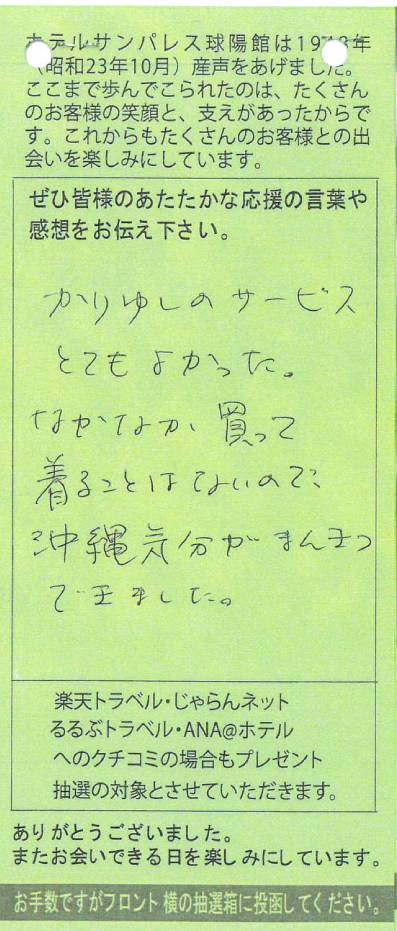 ホテルサンパレス球陽館は1948年
（昭和23年10月）産声をあげました。
ここまで歩んでこられたのは、たくさん
のお客様の笑顔と、支えがあったからで
す。これからもたくさんのお客様との出
会いを楽しみにしています。
ぜひ皆様のあたたかな応援の言葉や
感想をお伝え下さい。
かりゆしのサービス
とてもよかった。
なかなか買って
着ることはないので、
沖縄気分がまんきつ
できました。
楽天トラベル・じゃらんネット
るるぶトラベル・ANA@ホテル
へのクチコミの場合もプレゼント
抽選の対象とさせていただきます。
ありがとうございました。
またお会いできる日を楽しみにしています。
お手数ですがフロント横の抽選箱に投函してください。